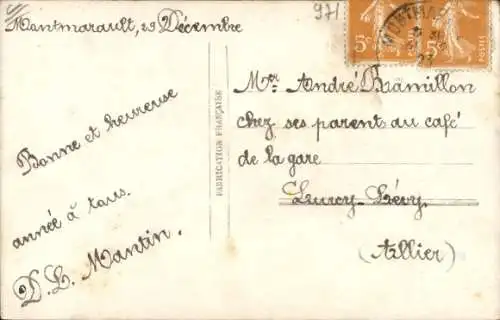 Montmarault, 29 Décembre
971
Bonne et heureuse
année à tous.
D. L. Mantin.
FABRICATION FRANÇAISE
5c
5c
POSTES
Mr André Bramillon
chez ses parents au café
de la gare
Lurcy-Lévy
(Allier)